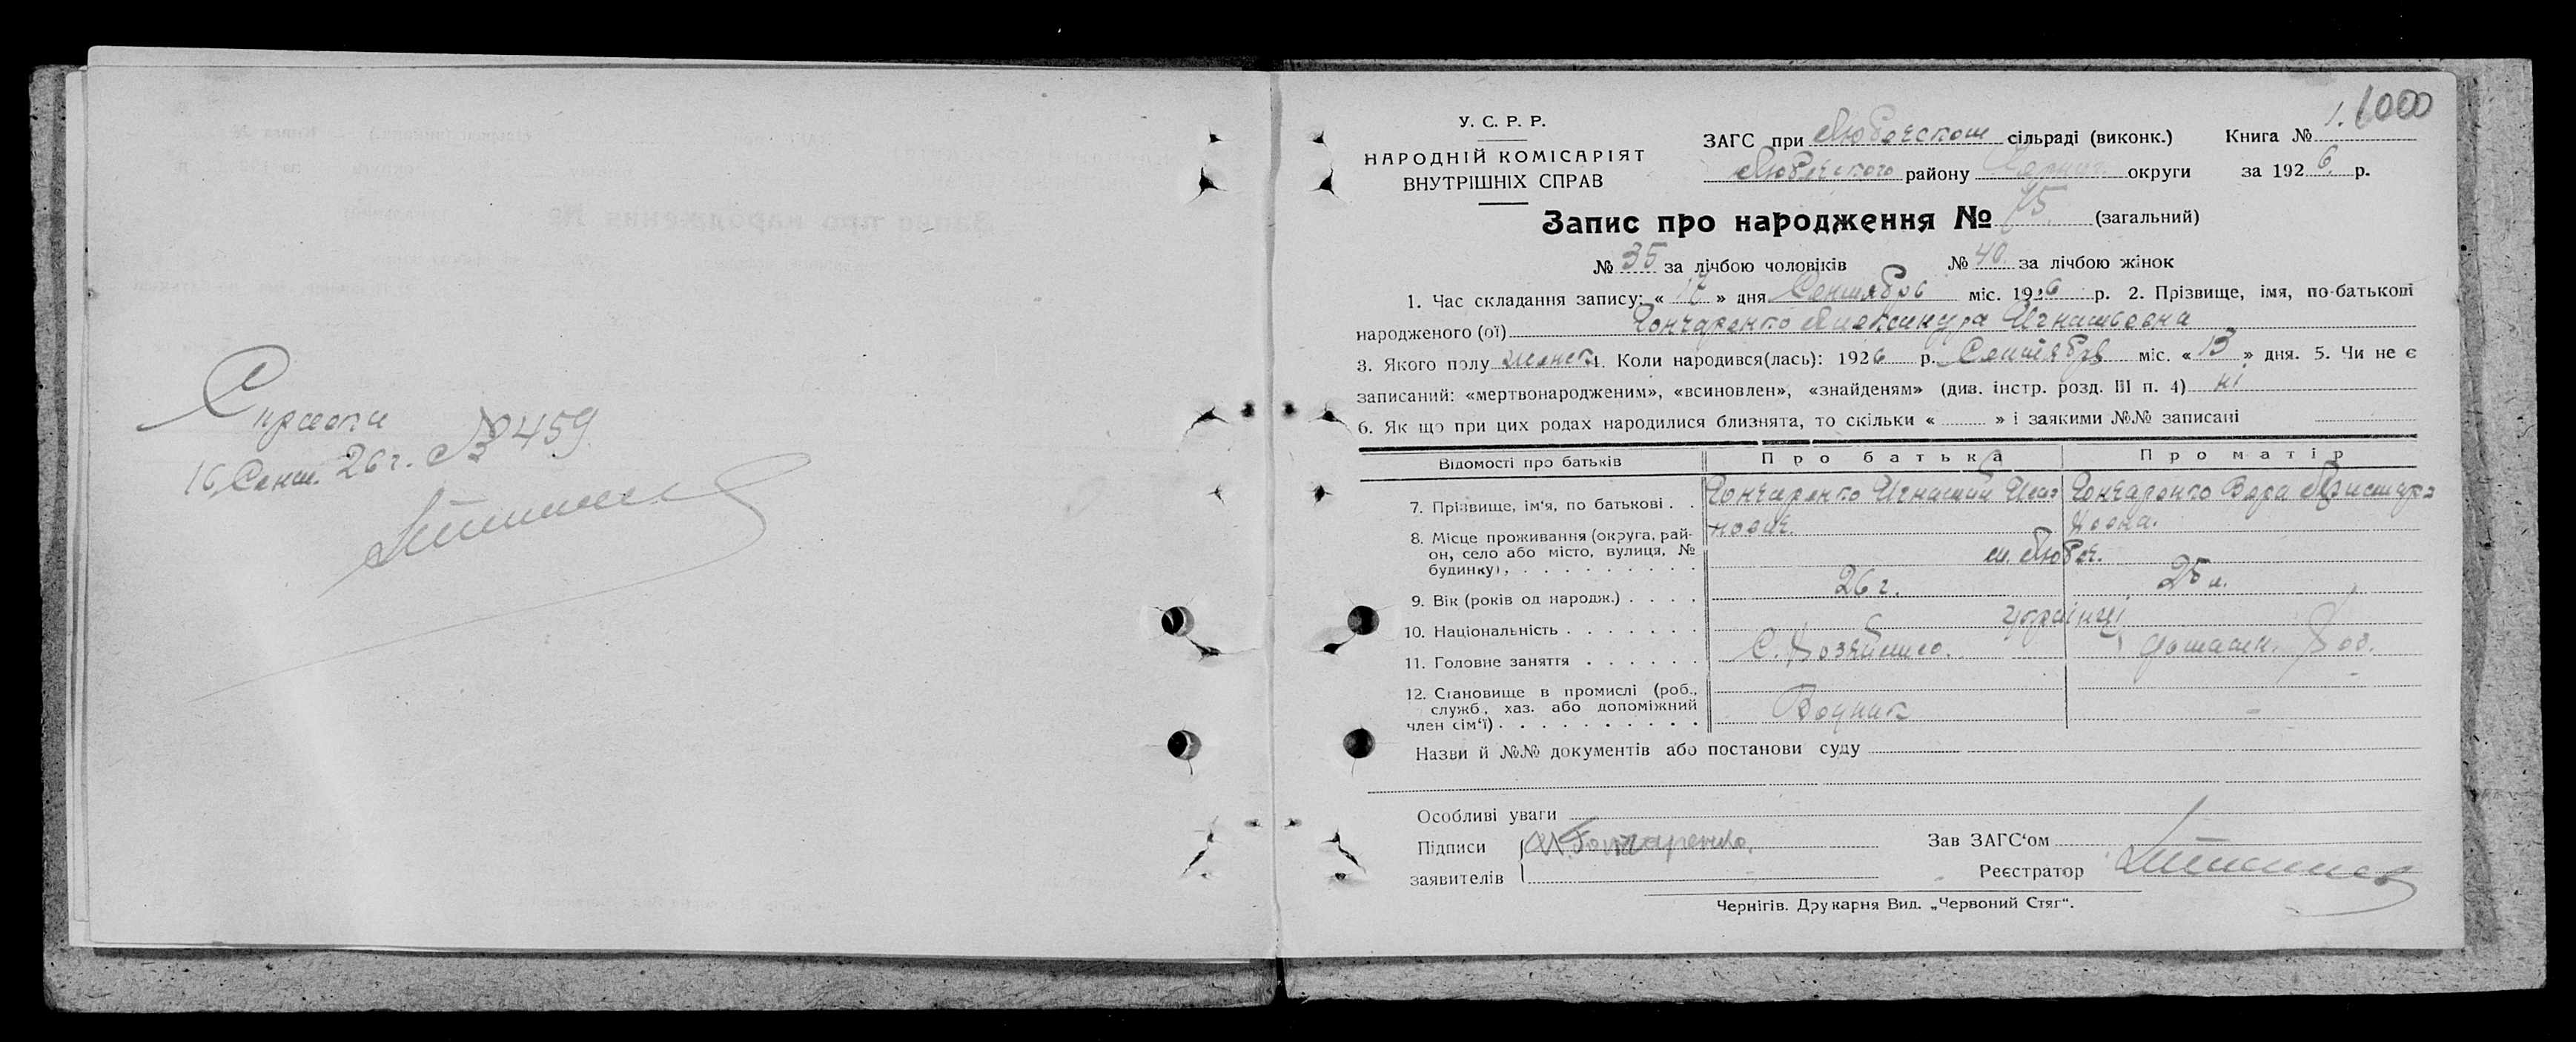 Справка
16 Сент. 26 г. № 459
1.000
У. С. Р. Р.
НАРОДНІЙ КОМІСАРІЯТ
ВНУТРІШНІХ СПРАВ
ЗАГС при Любечском сільраді (виконк.) Книга № 1.
Любечского району Черниг. округи за 1926. р.
Запис про народження № 75. (загальний)
№ 35 за лічбою чоловіків № 40. за лічбою жінок
1. Час складання запису: « 17 » дня Сентября міс. 1926 р. 2. Прізвище, імя, по-батькові
народженого (ої) Гончаренко Александра Игнатьевна
3. Якого полу женск. 4. Коли народився(лась): 1926 р. Сентября міс. « 13 » дня. 5. Чи не є
записаний: «мертвонародженим», «всиновлен», «знайденям» (див. інстр. розд. III п. 4) ні
6. Як що при цих родах народилися близнята, то скільки « » і заякими №№ записані
Відомості про батьків Про батька Про матір
7. Прізвище, ім'я, по батькові . . Гончаренко Игнатий Гончаренко Вера
нович. новна.
8. Місце проживання (округа, рай-
он, село або місто, вулиця, №
будинку), . . . . . . . . . . м. Любеч.
9. Вік (років од народж.) . . . . 26 г. 25 л.
10. Національність . . . . . . . українці
11. Головне заняття . . . . . . С. Хозяйство. домашн. Роб.
12. Становище в промислі (роб.,
служб., хаз. або допоміжний
член сім'ї) . . . . . . . . . . -
Назви й №№ документів або постанови суду
Особливі уваги
Підписи Гончаренко. Зав ЗАГС'ом
заявителів Реєстратор
Чернігів. Друкарня Вид. „Червоний Стяг“.